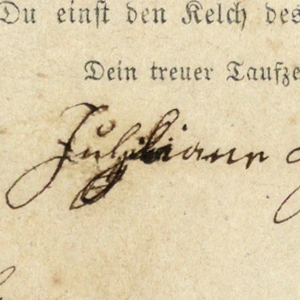 Du einst den Kelch des
Dein treuer Taufze
Juliane